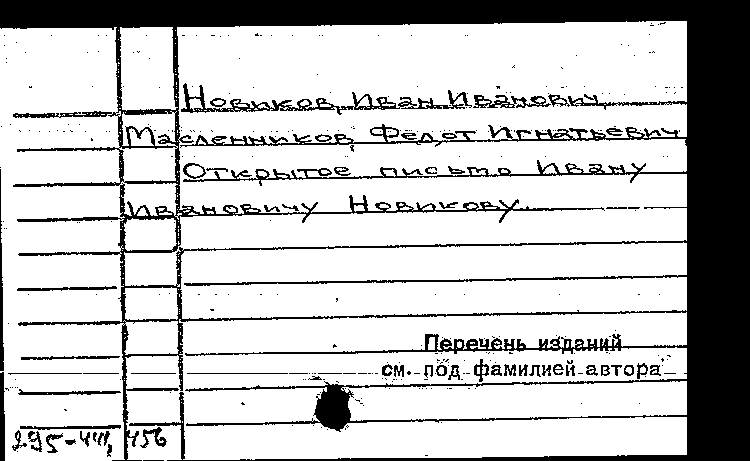 Новиков, Иван Иванович
Масленников, Федот Игнатьевич
Открытое письмо Ивану
Ивановичу Новикову.
Перечень изданий
см. под фамилией автора
295-441, 456